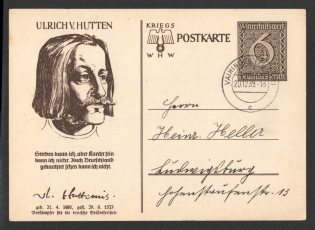 ULRICH V. HUTTEN
KRIEGS
WHW
POSTKARTE
Winterhilfswerk
6
20.12.39.-15
c
Sterben kann ich, aber Knecht sein
kann ich nicht. Auch Deutschland
geknechtet sehen kann ich nicht.
geb. 21. 4. 1488, gest. 29. 8. 1523
Vorkämpfer für die deutsche Geistesfreiheit
Herrn
Heinz Heller
Ludwigsburg
Hohenstaufenstr. 13